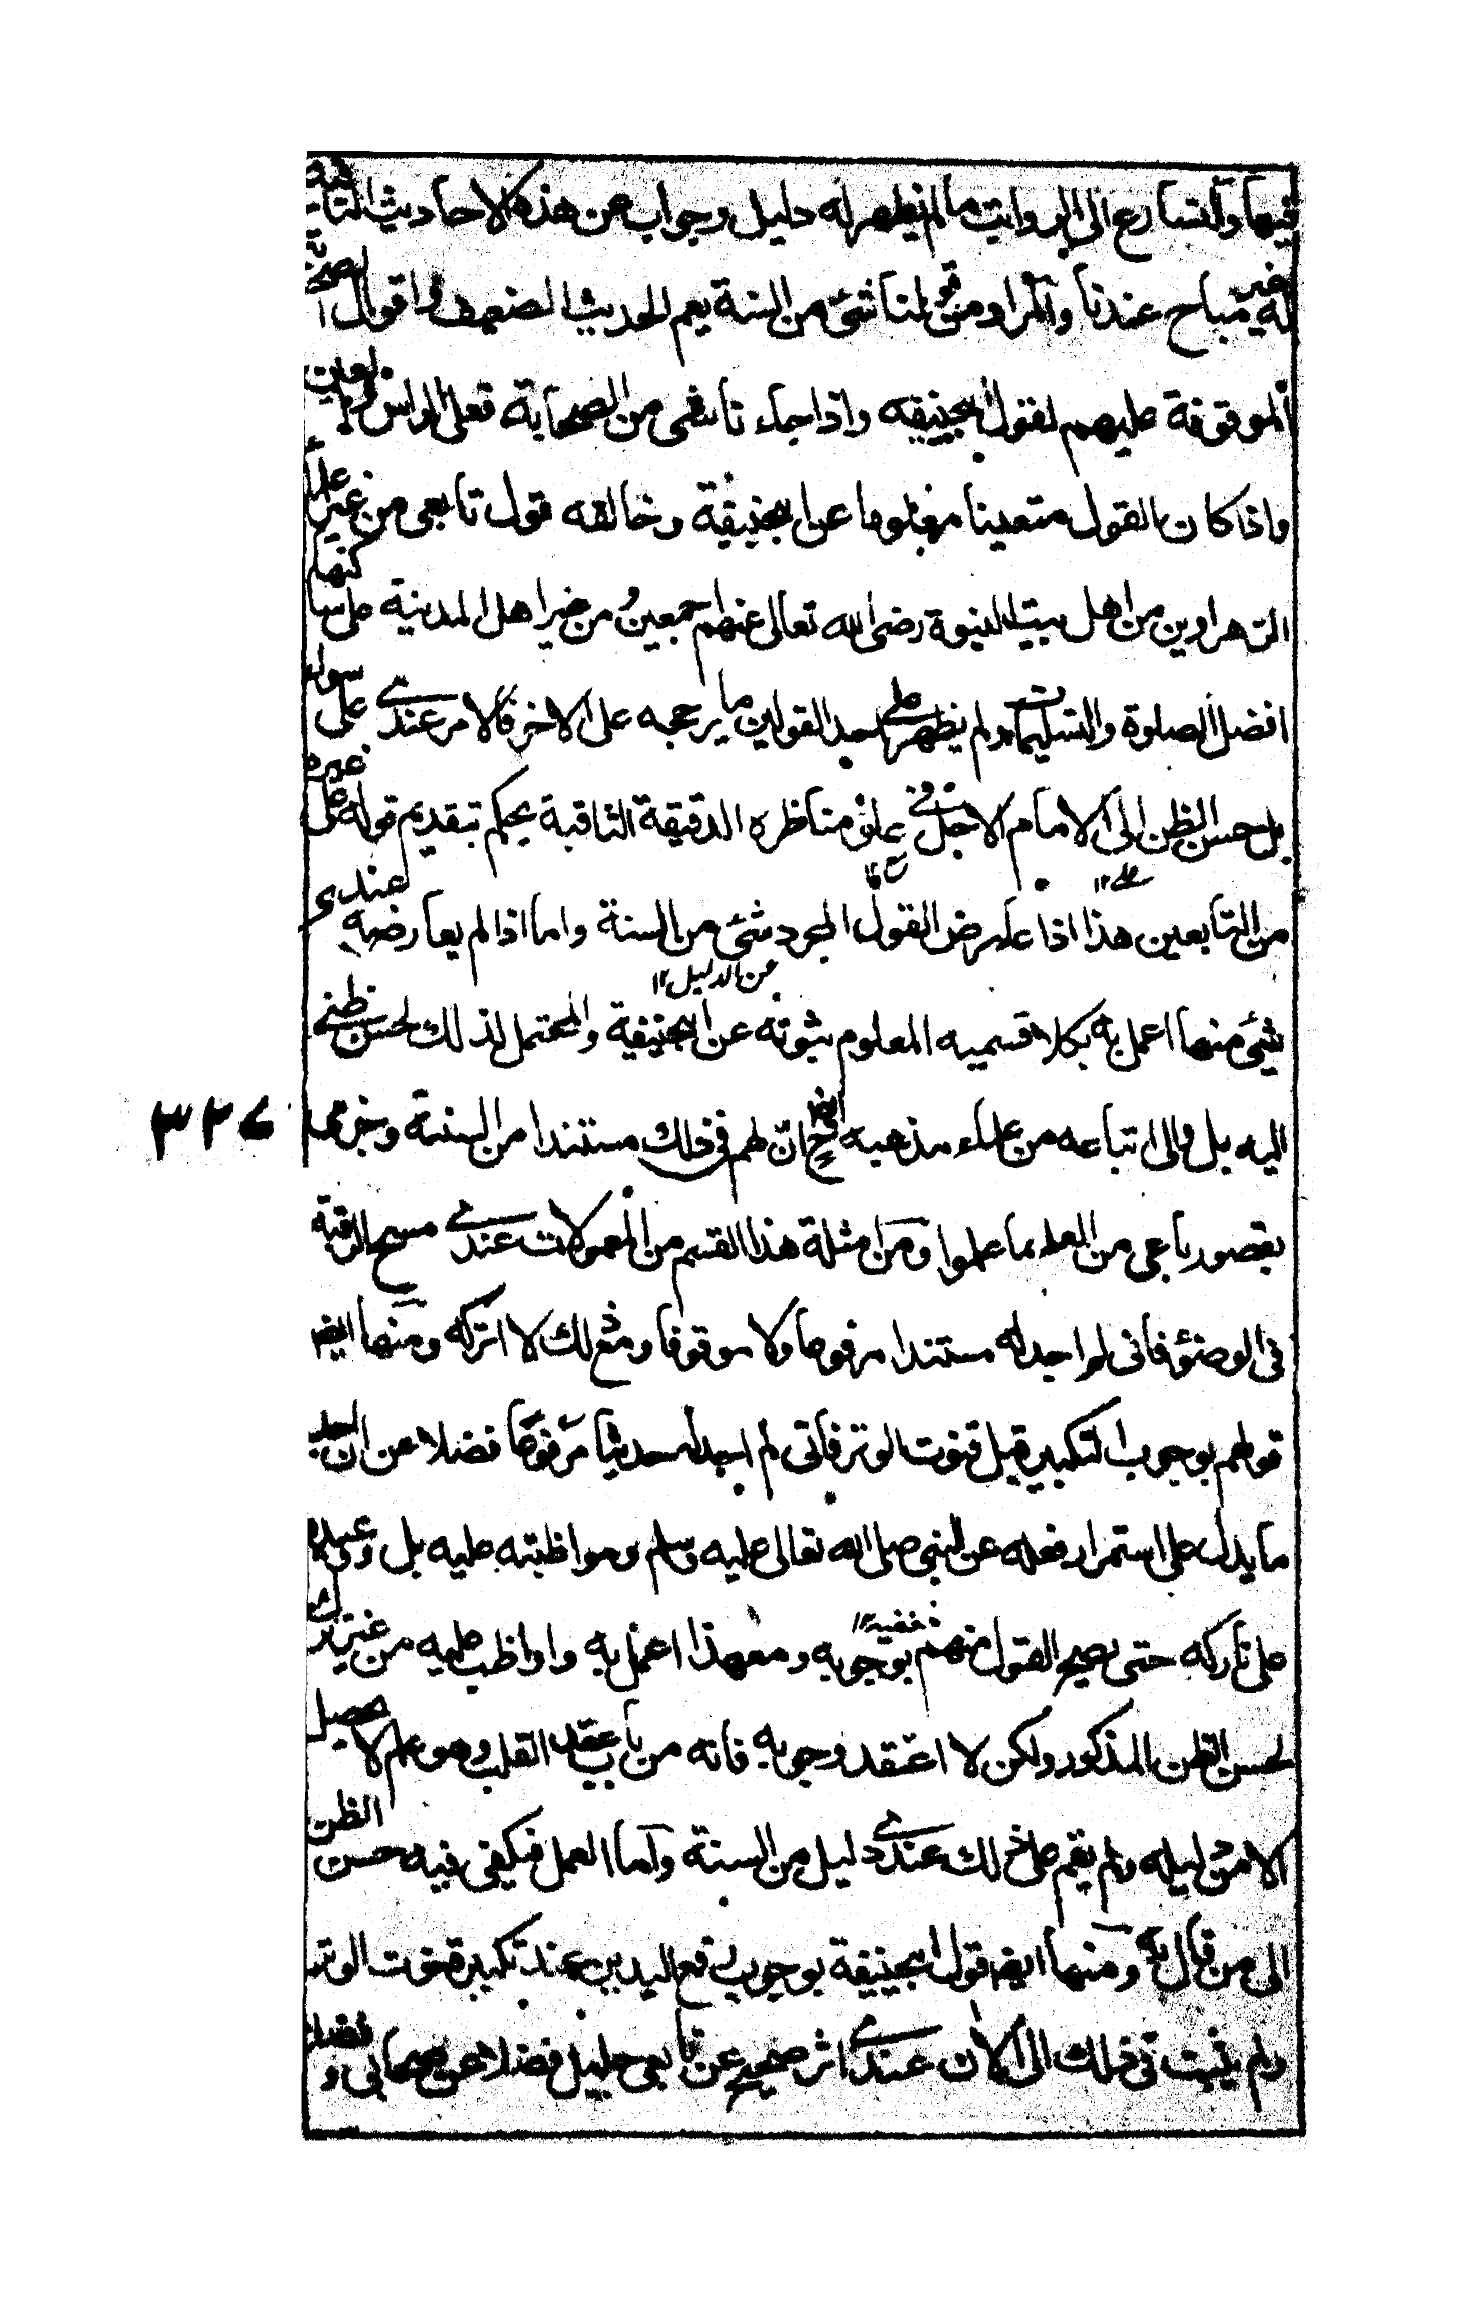 فيها والتسارع الى الروايت ما لم يظهر له دليل وجواب من هذه الاحاديث الثابتة
له غير مباح عندنا والمراد من قولنا شئ من السنة يعم الحديث الضعيف واقوال الصحابة
الموقوفة عليهم لقول ابيحنيفه واذا جاء تا من الصحابة فعلى الراس والعين
واذا كان القول متعينا معلوما عن ابيحنيفة وخالفه قول تابعى من غير
الزهراوين من اهل بيت النبوة رضى الله تعالى عنهم اجمعين من خير اهل المدينة على ساكنها
افضل الصلوة والتسليمات ولم يظهر لى احد القولين ما يرجحه على الاخر فالامر عندى على
بل حسن الظن الى الامام الاجل فى علو مناظره الدقيقة الثاقبة يحكم بتقديم قوله على غيره
من التابعين هذا اذا عارض القول المجرد شئ من السنة واما اذا لم يعارضه عندى
من الدليل ١٢
شئ منها اعمل به بكلا قسميه المعلوم ثبوته عن ابيحنيفة والمحتمل لذلك لحسن ظنى
اليه بل والى اتباعه من علماء مذهبه ان لهم فى ذلك مستندا من السنة وجزمى
٣٢٧
بقصور باعى من العلم بما عملوا ومن امثلة هذا القسم من المعمولات عندى مسح الرقبة
فى الوضوء فانى لم اجد له مستندا مرفوعا ولا موقوفا ومع ذلك لا اتركه ومنها ايضا
قولهم بوجوب التكبير قبل قنوت الوتر فانى لم اجد له حديثا مرفوعا فضلا عن ان اجد
ما يدل على استمرار فعله عن النبى صلى الله تعالى عليه وسلم ومواظبته عليه بل وعيده
على تاركه حتى يصح القول منهم بوجوبه ومع هذا اعمل به واواظب عليه من غير ترك
الحنفية ١٢
لحسن الظن المذكور ولكن لا اعتقد وجوبه فانه من باب عقد القلب وهو علم لا يحصل
الا من دليله ولم يقم على ذلك عندى دليل من السنة واما العمل فيكفى فيه حسن الظن
الى من قال به ومنها ايضا قول ابيحنيفة بوجوب رفع اليدين عند تكبير قنوت الوتر
ولم يثبت فى ذلك الى الان عندى اثر صحيح عن تابعى جليل فضلا عن صحابى وفضلا